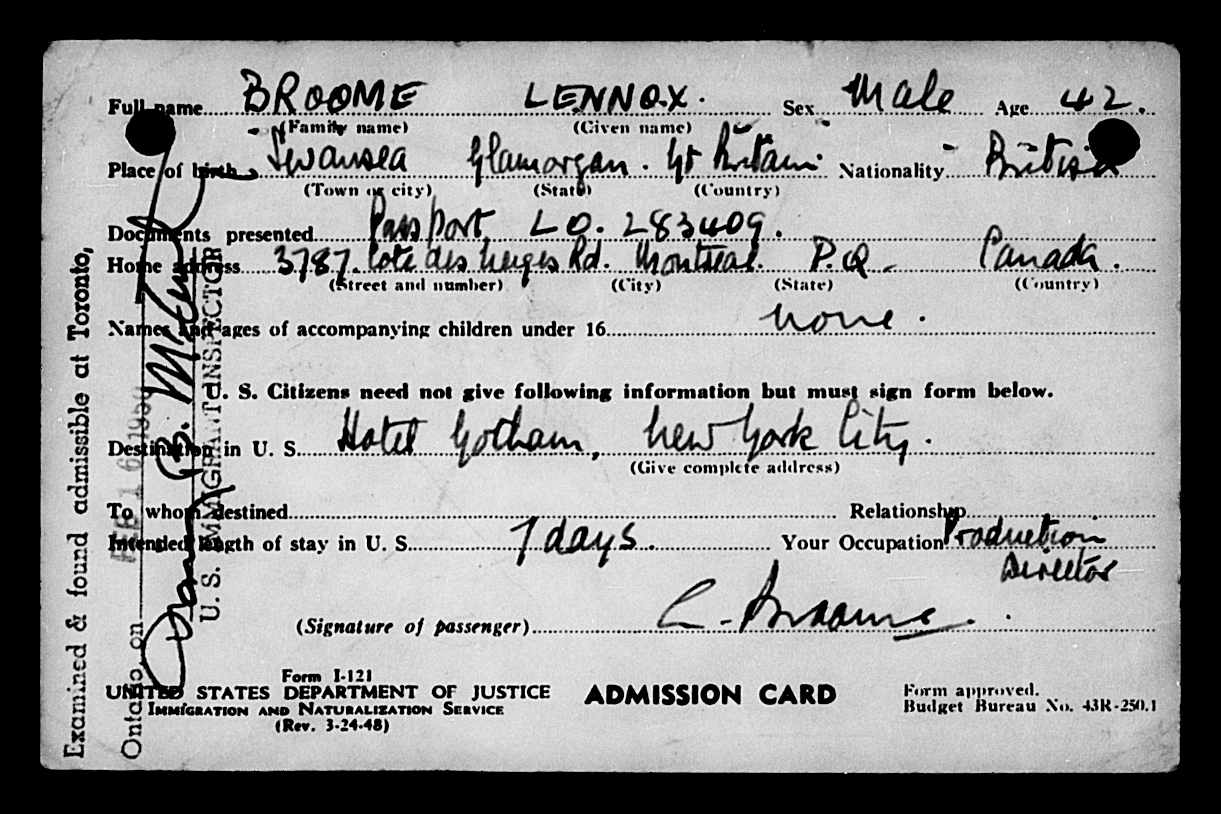 Full name BROOME LENNOX. Sex Male Age 42.
(Family name) (Given name)
Place of birth Swansea Glamorgan. Gt Britain Nationality British
(Town or city) (State) (Country)
Documents presented Passport LO. 283409.
Home address 3787. Cote des Neiges Rd. Montreal. P.Q. Canada.
(Street and number) (City) (State) (Country)
Names and ages of accompanying children under 16 none.
U. S. Citizens need not give following information but must sign form below.
Destination in U. S. Hotel Gotham, New York City.
(Give complete address)
To whom destined Relationship
Intended length of stay in U. S. 7 days. Your Occupation Production
Director
(Signature of passenger) L. Broome.
Form I-121
UNITED STATES DEPARTMENT OF JUSTICE ADMISSION CARD Form approved.
IMMIGRATION AND NATURALIZATION SERVICE Budget Bureau No. 43R-250.1
(Rev. 3-24-48)
Examined & found admissible at Toronto,
Ontario, on FEB 16 1950
U. S. IMMIGRANT INSPECTOR